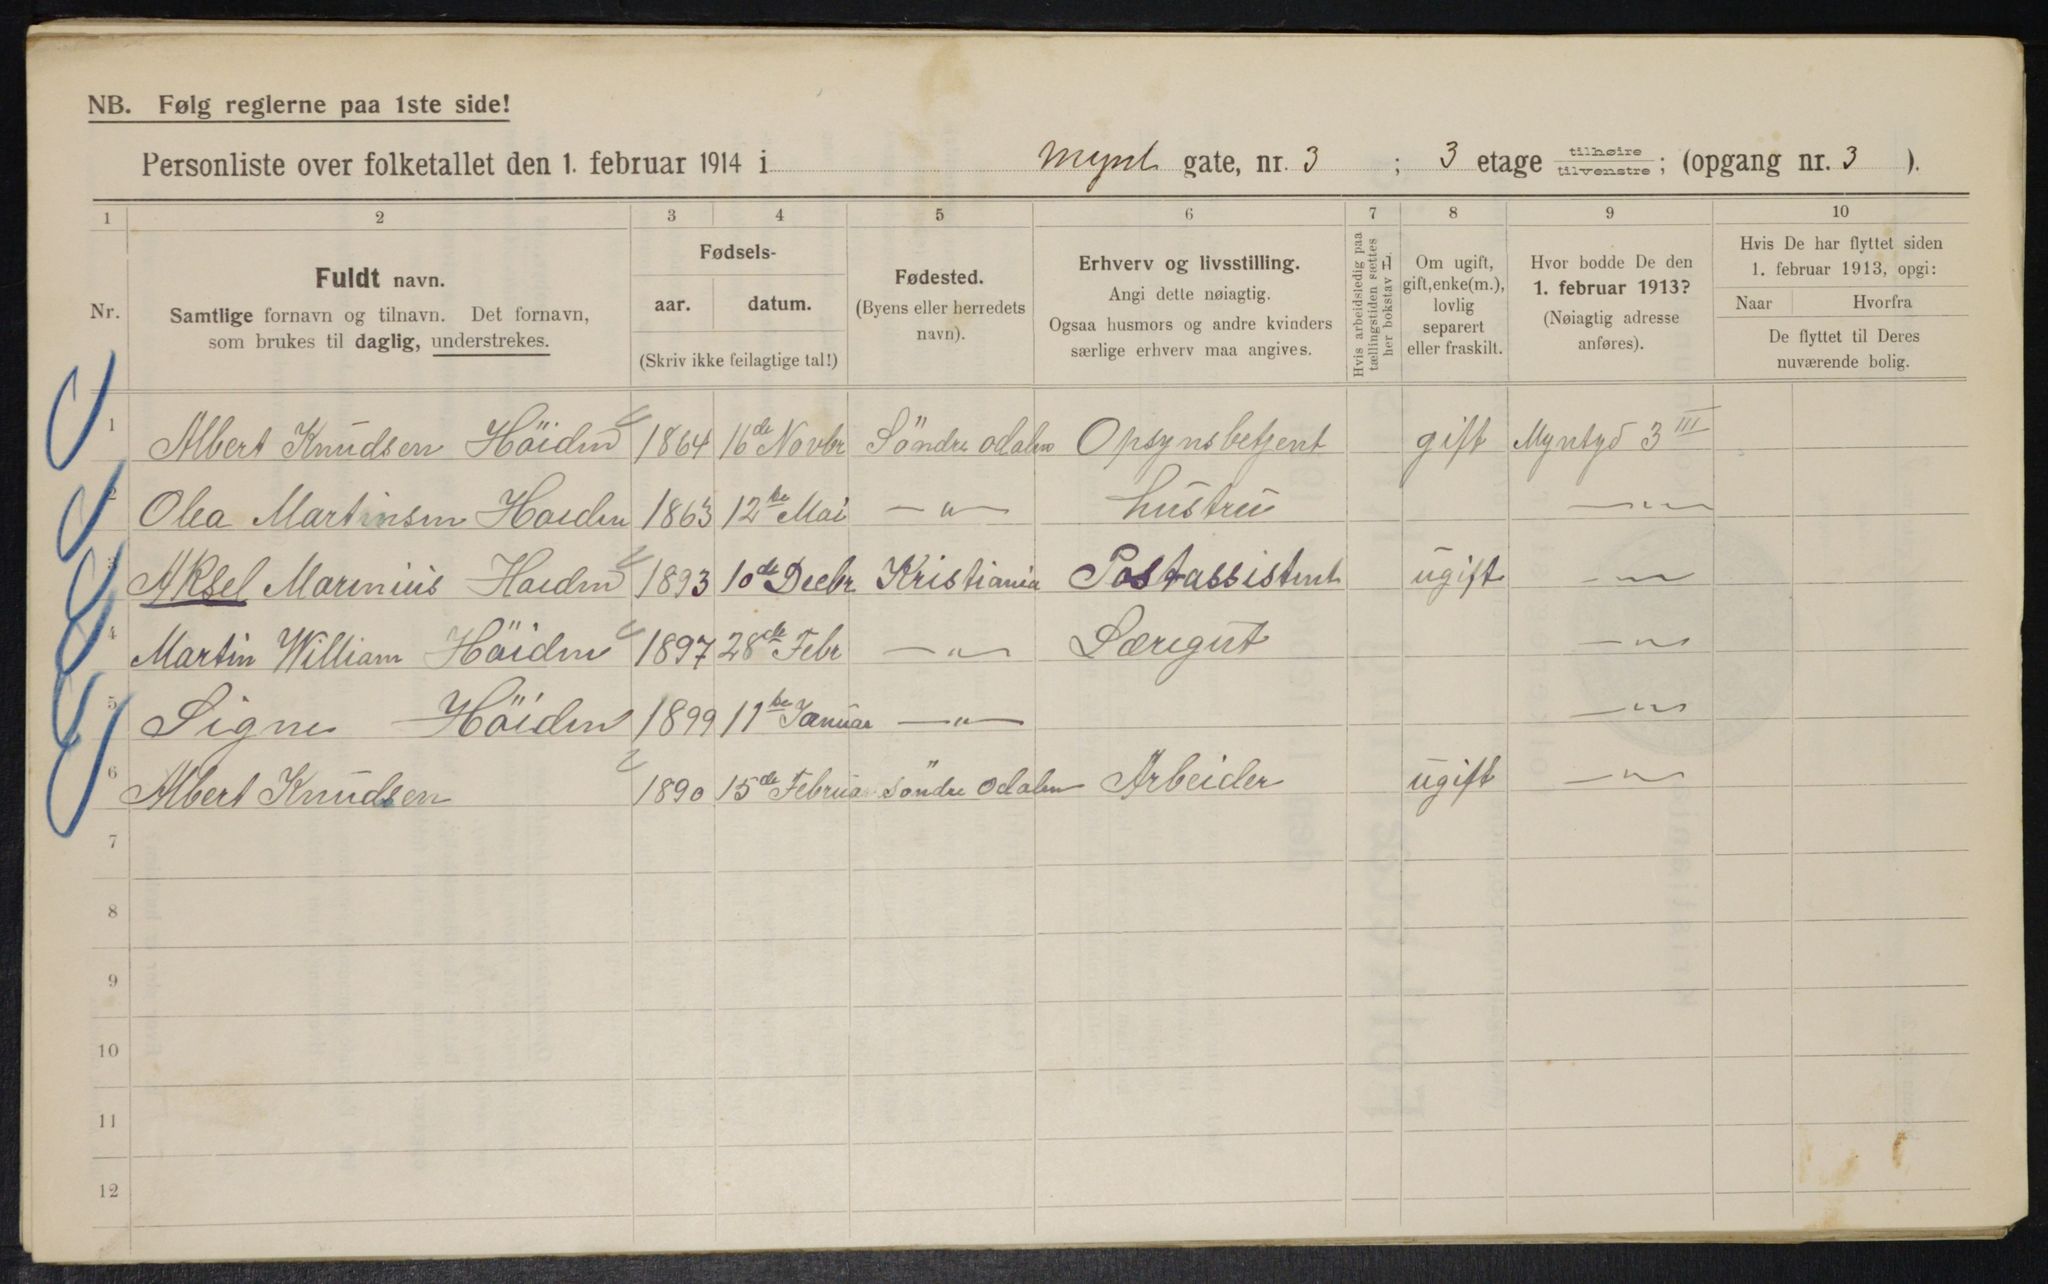 NB. Følg reglerne paa 1ste side!
Personliste over folketallet den 1. februar 1914 i Mynt gate, nr. 3 ; 3 etage tilhøire tilvenstre ; (opgang nr. 3 ).
1 2 3 4 5 6 7 8 9 10
Nr.
Fuldt navn.
Samtlige fornavn og tilnavn. Det fornavn,
som brukes til daglig, understrekes.
Fødsels-
aar. datum.
(Skriv ikke feilagtige tal!)
Fødested.
(Byens eller herredets
navn).
Erhverv og livsstilling.
Angi dette nøiagtig.
Ogsaa husmors og andre kvinders
særlige erhverv maa angives.
Hvis arbeidsledig paa
tællingstiden sættes
her bokstav L
Om ugift,
gift, enke(m.),
lovlig
separert
eller fraskilt.
Hvor bodde De den
1. februar 1913?
(Nøiagtig adresse
anføres).
Hvis De har flyttet siden
1. februar 1913, opgi:
Naar Hvorfra
De flyttet til Deres
nuværende bolig.
1 Albert Knudsen Höiden 1864 16de Novbr Söndre Odalen Opsynsbetjent gift Myntgd 3 III
2 Olea Martinsen Hoiden 1863 12te Mai —"— Hustru —"—
3 Aksel Marinius Hoiden 1893 10de Decbr Kristiania Postassistent ugift —"—
4 Martin William Höiden 1897 28de Febr —"— Læregut —"—
5 Signe Höiden 1899 11te Januar —"— —"—
6 Albert Knudsen 1890 15de Februar Söndre Odalen Arbeider ugift —"—
7
8
9
10
11
12